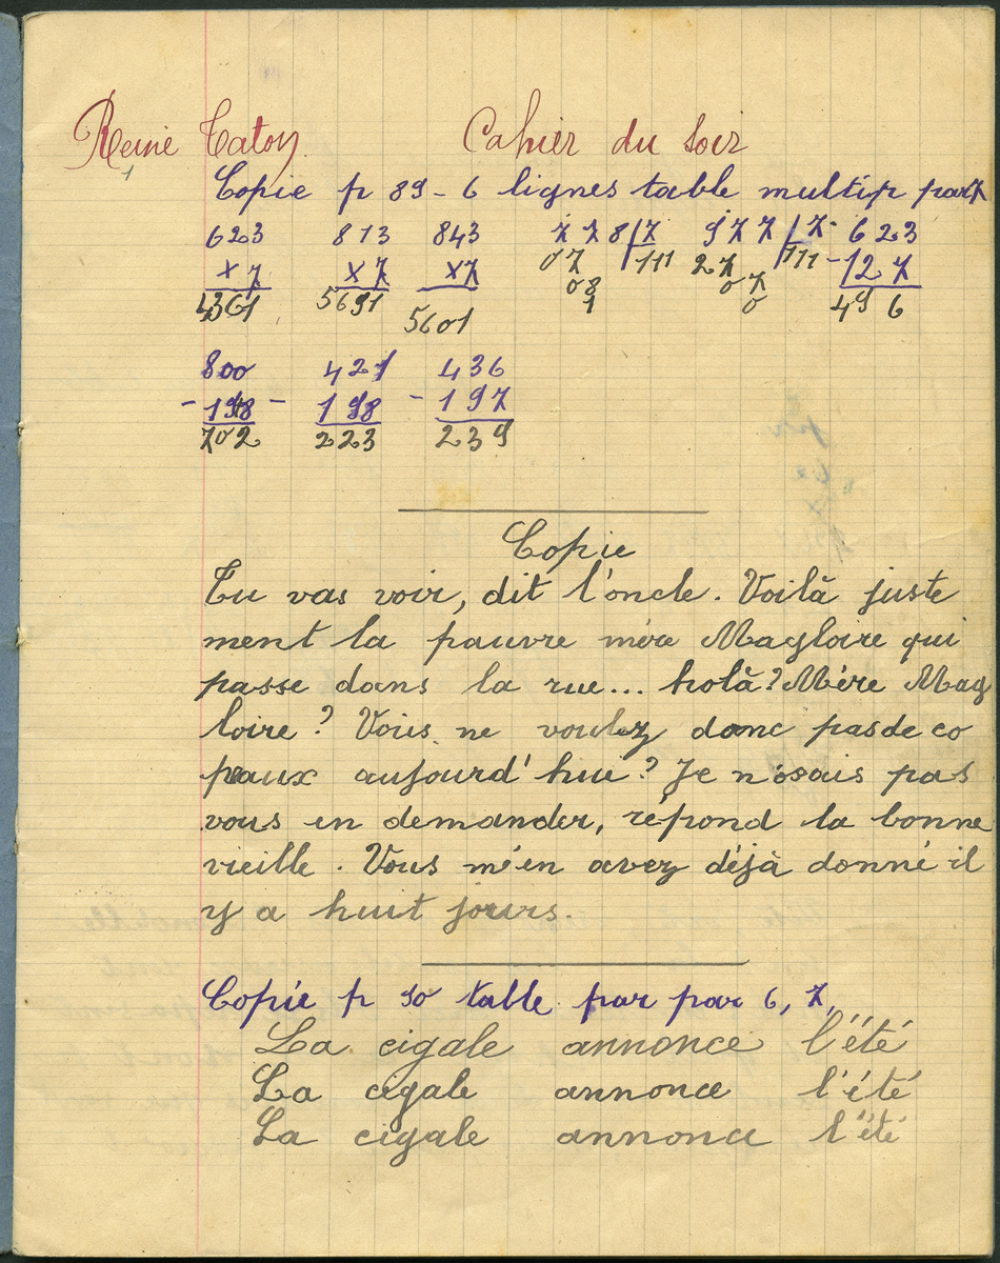 Reine Catoy Cahier du Soir
1
Copie p 89 - 6 lignes table multip par 7
623 813 843 778/7 977/7 623
x7 x7 x7 07 /111 27 /111 -127
4361 5691 5601 08 07 496
1 0
800 421 436
-198 -198 -197
702 223 239
Copie
Tu vas voir, dit l'oncle. Voilà juste
ment la pauvre mère Magloire qui
passe dans la rue... holà? Mère Mag
loire? Vous ne voulez donc pas de co
peaux aujourd'hui? Je n'osais pas
vous en demander, répond la bonne
vieille. Vous m'en avez déjà donné il
y a huit jours.
Copie p 90 table par par 6, 7.
La cigale annonce l'été
La cigale annonce l'été
La cigale annonce l'été